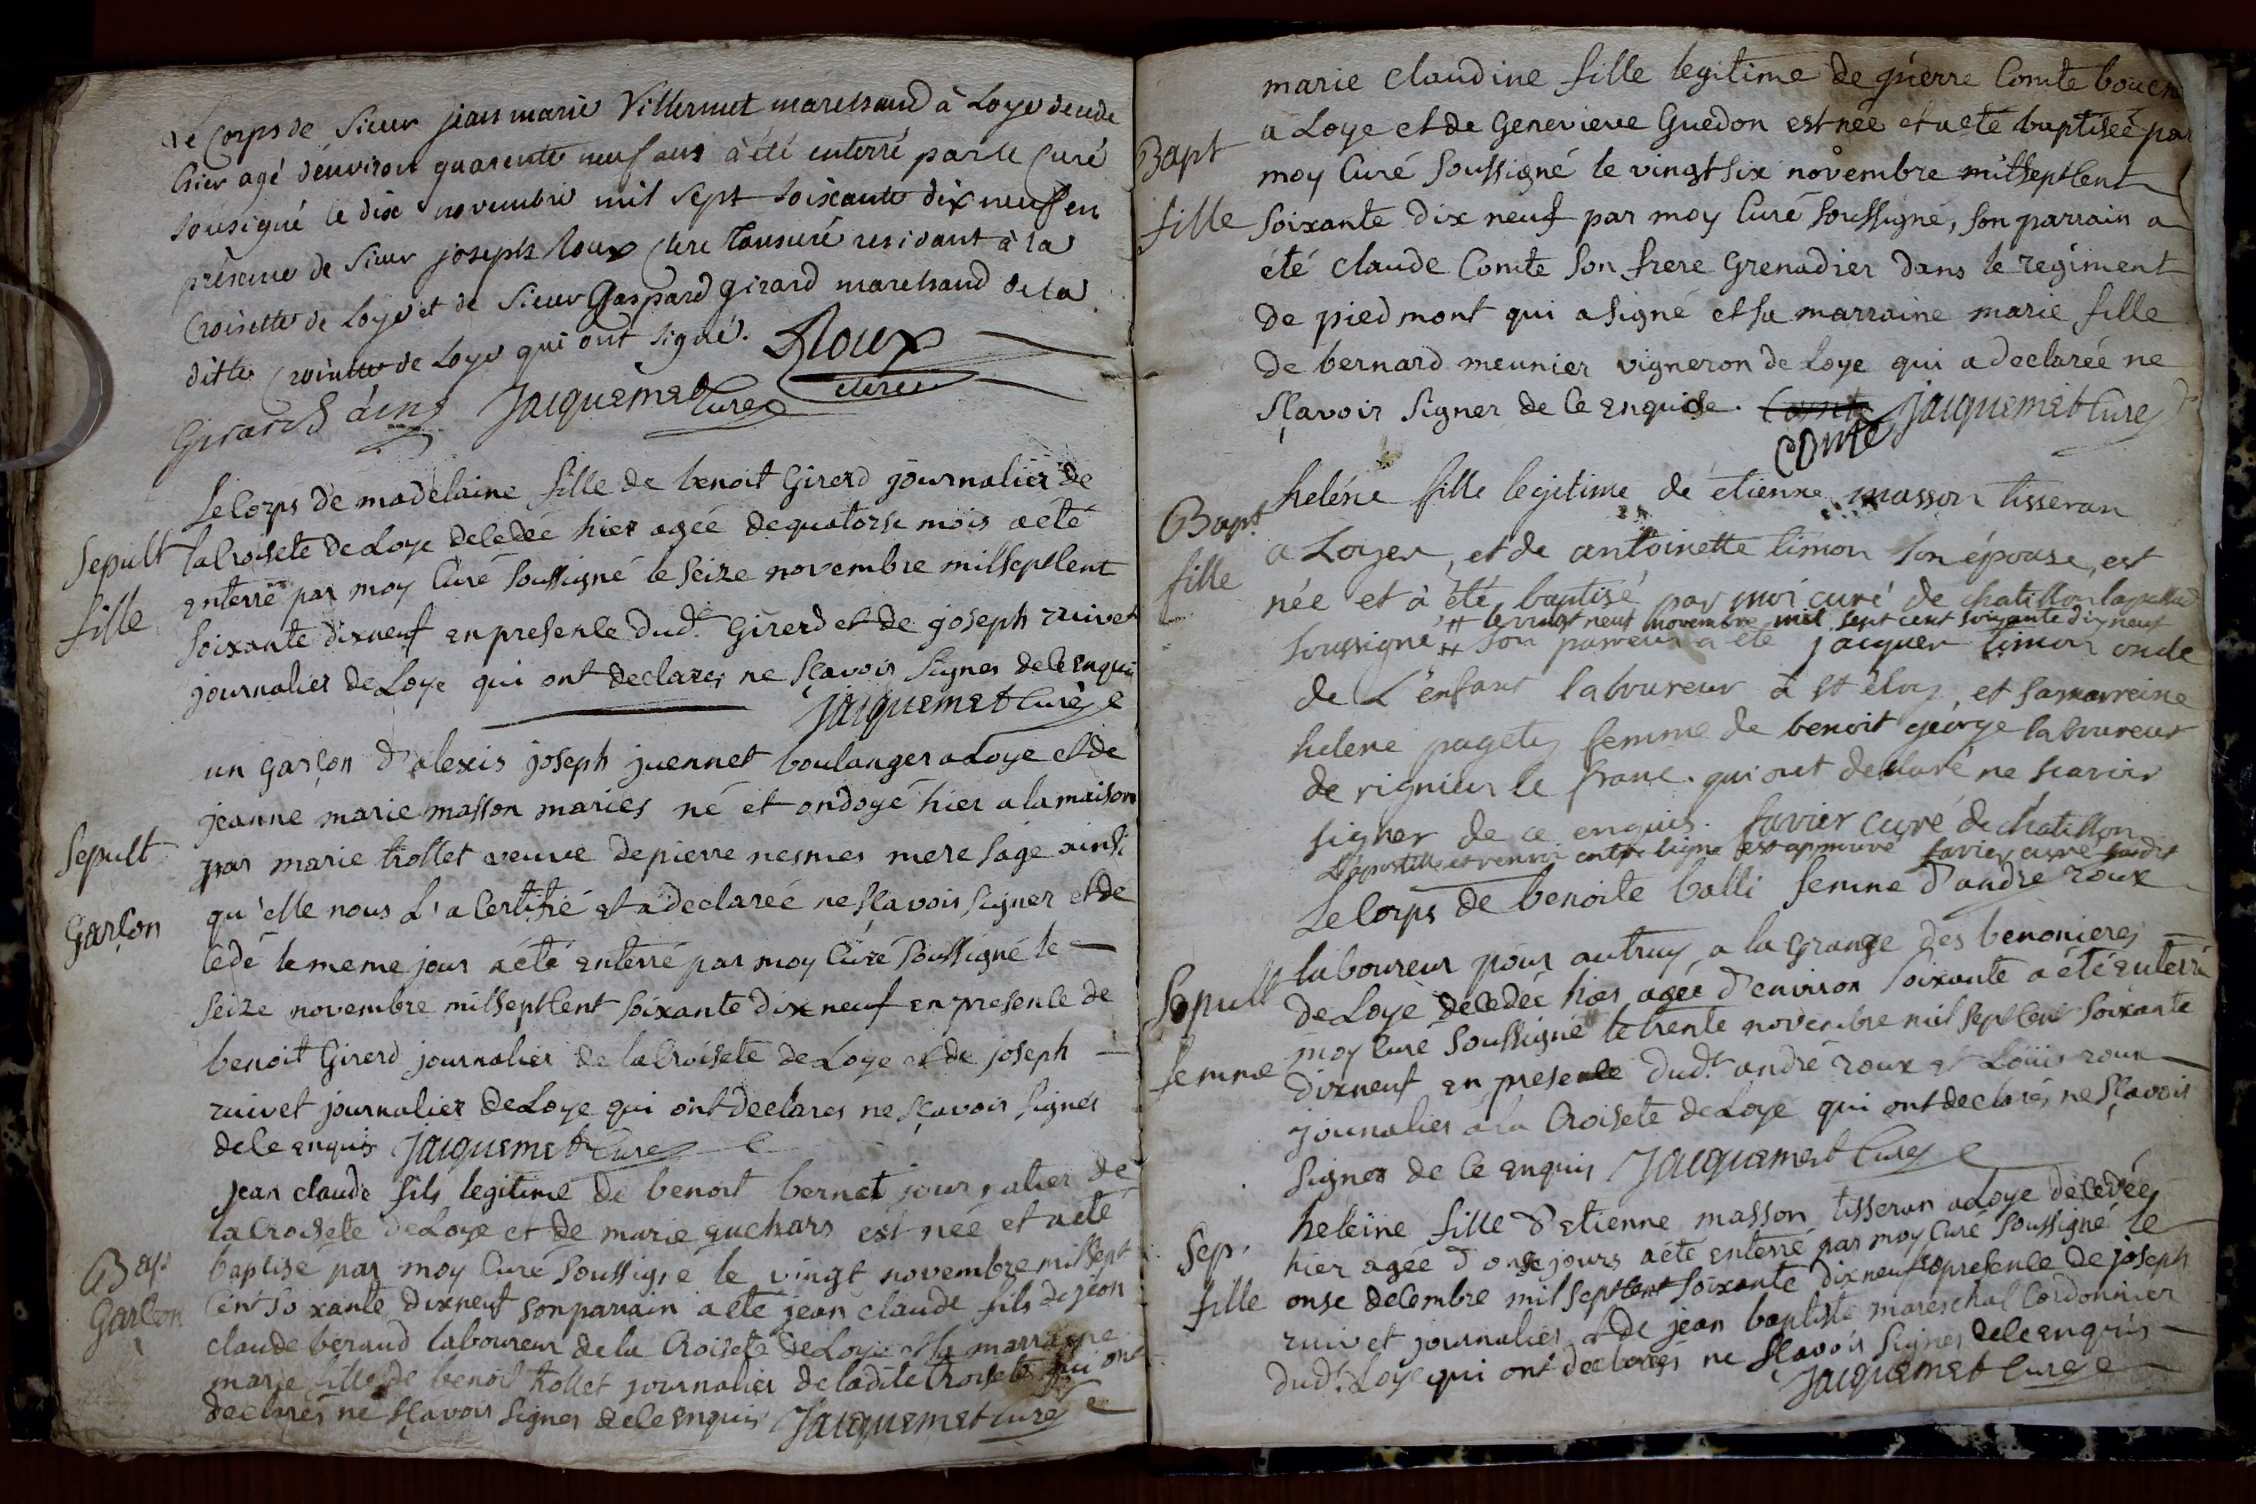 Le Corps de Sieur jean marie Villermet marchand à Loye décédé
hier agé d'environ quarente neuf ans à été enterré par le Curé
sousigné le dix novembre mil sept soixante dix neuf en
présence de Sieur joseph Roux Clerc Tonsuré residant à la
Croisette de Loye et de Sieur Gaspard Girard marchand de la
ditte Croisette de Loye qui ont signé. Roux
clerc
Girard ainé Jacquemet Curé
Le Corps de madelaine fille de benoit Girerd journalier de
Sepult
fille
la Croisete de Loye decedée hier agée de quatorse mois a eté
enterré par moy Curé soussigné le seize novembre mil sept cent
soixante dix neuf en presence dud.t Girerd et de joseph ruivet
journalier de Loye qui ont declarés ne sçavoir signer de ce enquis
Jacquemet Curé
un garçon d'alexis joseph juennet boulanger a Loye et de
jeanne marie masson mariés né et ondoyé hier a la maison
Sepult
Garçon
par marie trollet veuve de pierre nesmes mere sage ainsi
qu'elle nous l'a certifié et a declarée ne sçavoir signer et de
cedé le meme jour a été enterré par moy Curé soussigné le
seize novembre mil sept cent soixante dix neuf en presence de
benoit Girerd journalier de la Croisete de Loye et de joseph
ruivet journalier de Loye qui ont declarés ne sçavoir signer
de ce enquis Jacquemet Curé
jean claude fils legitime de benoit bernet journalier de
la Croisete de Loye et de marie guchars est née et a eté
Bap
Garçon
baptisé par moy Curé soussigné le vingt novembre mil sept
cent soixante dix neuf son parrain a eté jean claude fils de jean
claude beraud laboureur de la Croisete de Loye et sa marraine
marie fille de benoit trollet journalier de la dite Croisete qui ont
declarés ne sçavoir signer de ce enquis Jacquemet Curé
marie claudine fille legitime de pierre Comte boucher
a Loye et de Genevieve Guedon est née et a eté baptisée par
Bapt
fille
moy Curé soussigné le vingt six novembre mil sept cent
soixante dix neuf par moy Curé soussigné, son parrain a
été claude Comte son frere Grenadier dans le regiment
de piedmont qui a signé et sa marraine marie fille
de bernard meunier vigneron de Loye qui a declarée ne
sçavoir signer de ce enquise. Jacquemet Curé
comte
Bapt
fille
heléne fille legitime de étienne masson tisseran
a Loyer, et de antoinette Limon son épouse, est
née et à été baptisé par moi curé de chatillon lapallud
# le vingt neuf novembre mil sept cent soixante dix neuf
soussigné # son parrein a été jacquer Limon oncle
de L'enfant laboureur à st éloy, et sa marreine
helene pagety femme de benoit george laboureur
de rignieu le franc. qui ont declaré ne scavoir
signer de ce enquis. favier curé de chatillon
L'apostille et renvoi entre ligne est approuvé favier curé susdit
Le Corps de benoite balli femme d'andré roux
laboureur pour autruy a la Grange des benonieres
Sepult
femme
de Loye decedée hier agée d'environ soixante a été enterré
moy Curé soussigné le trente novembre mil sept cent soixante
dix neuf en presence dud.t andré roux et Loüis roux
journalier a la Croisete de Loye qui ont declarés ne sçavoir
signer de ce enquis Jacquemet Curé
heleine fille d'etienne masson tisseran a Loye decedée
Sep.
fille
hier agée d'onse jours a eté enterré par moy Curé soussigné le
onse decembre mil sept cent soixante dix neuf en presence de joseph
ruivet journalier et de jean baptiste mareschal Cordonnier
dud.t Loye qui ont declarés ne sçavoir signer de ce enquis
Jacquemet Curé